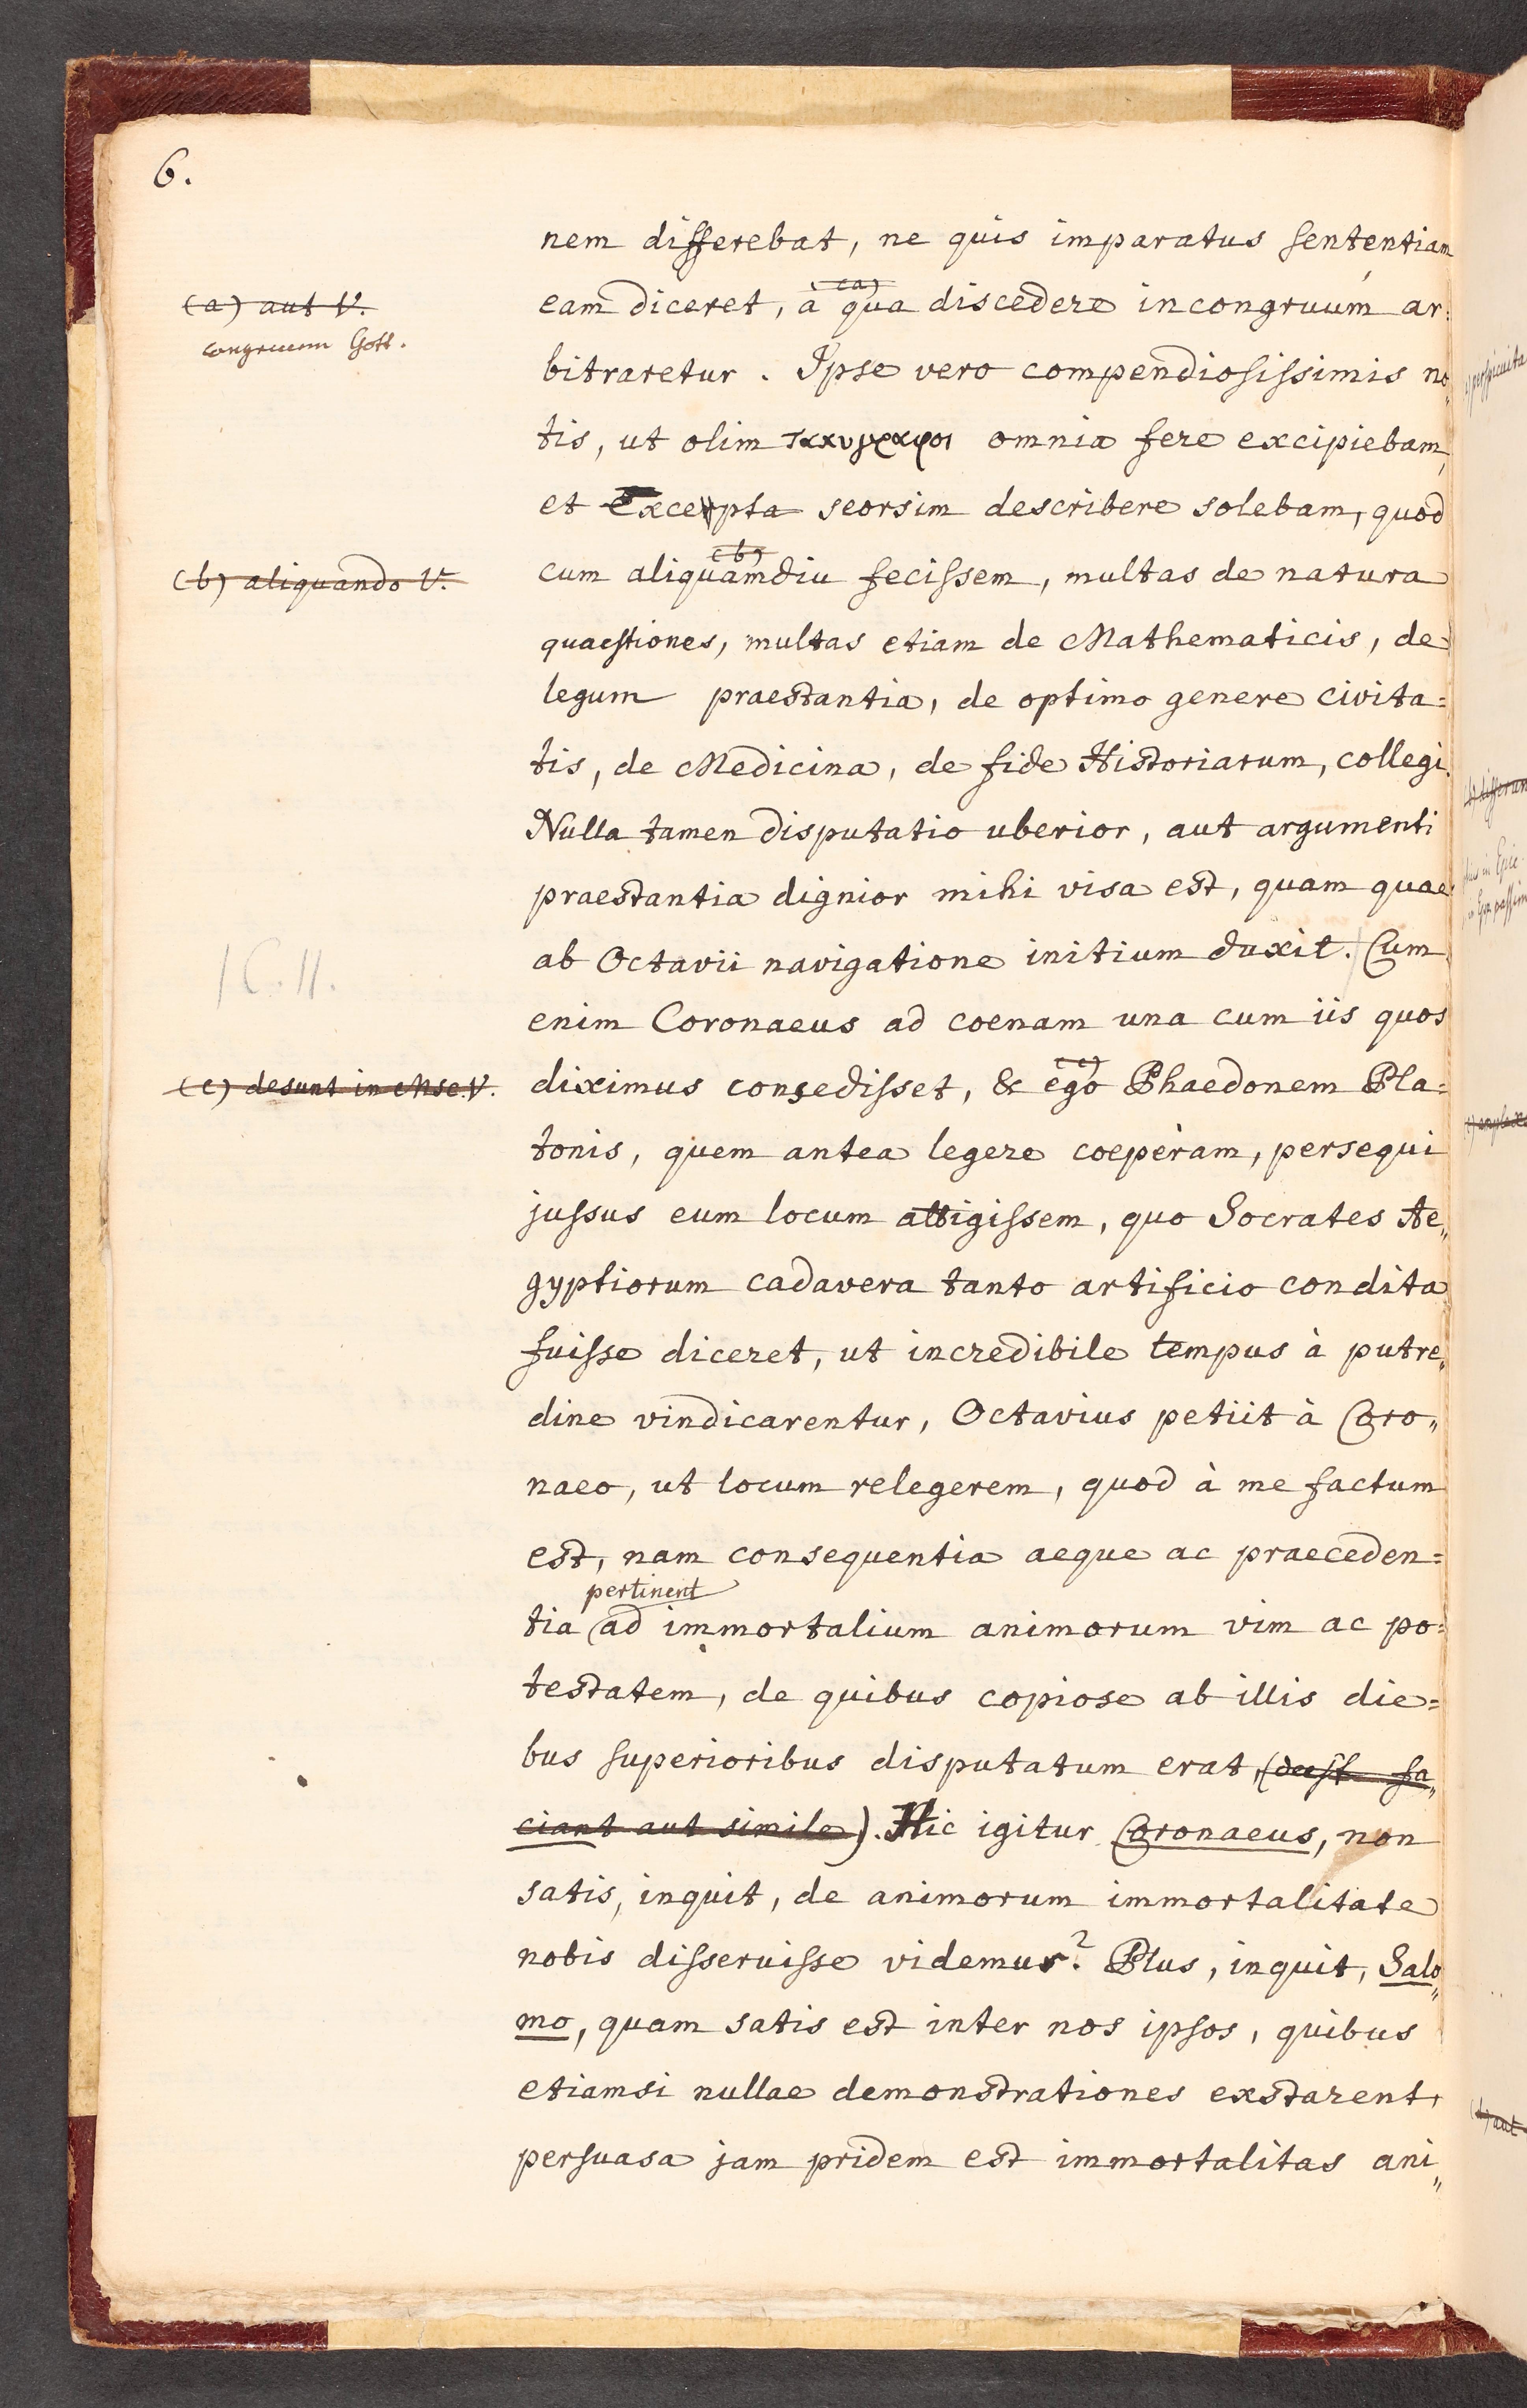 6.
nem differebat, ne quis imparatus sententiam
(a)
(a) aut V.
eam diceret, à qua discedere incongruum ar:
congruum Gott.
bitraretur. Ipse vero compendiosissimis no„
tis, ut olim omnia fere excipiebam,
et Excerpta seorsim describere solebam, quod
(b)
(b) aliquando V.
cum aliquamdiu fecissem, multas de natura
quaestiones, multas etiam de Mathematicis, de
legum praestantia, de optimo genere civita=
tis, de Medicina, de fide Historiarum, collegi.
Nulla tamen disputatio uberior, aut argumenti
praestantia dignior mihi visa est, quam quae
ab Octavii navigatione initium duxit. / Cum
/C. 11.
enim Coronaeus ad coenam una cum iis quos
(c)
(c) desunt in Msc. V.
diximus consedisset, & ego Phaedonem Pla=
tonis, quem antea legere coeperam, persequi
jussus eum locum attigissem, quo Socrates Ae„
gyptiorum cadavera tanto artificio condita
fuisse diceret, ut incredibile tempus à putre„
dine vindicarentur, Octavius petiit à Coro„
naeo, ut locum relegerem, quod à me factum
est, nam consequentia aeque ac praeceden=
pertinent
tia ad immortalium animorum vim ac po=
testatem, de quibus copiose ab illis die=
bus superioribus disputatum erat, (deest fa„
ciant aut simile). Hic igitur Coronaeus, non
satis, inquit, de animorum immortalitate
nobis disseruisse videmur? Plus, inquit, Salo„
mo, quam satis est inter nos ipsos, quibus
etiamsi nullae demonstrationes exstarent,
persuasa jam pridem est immortalitas ani„